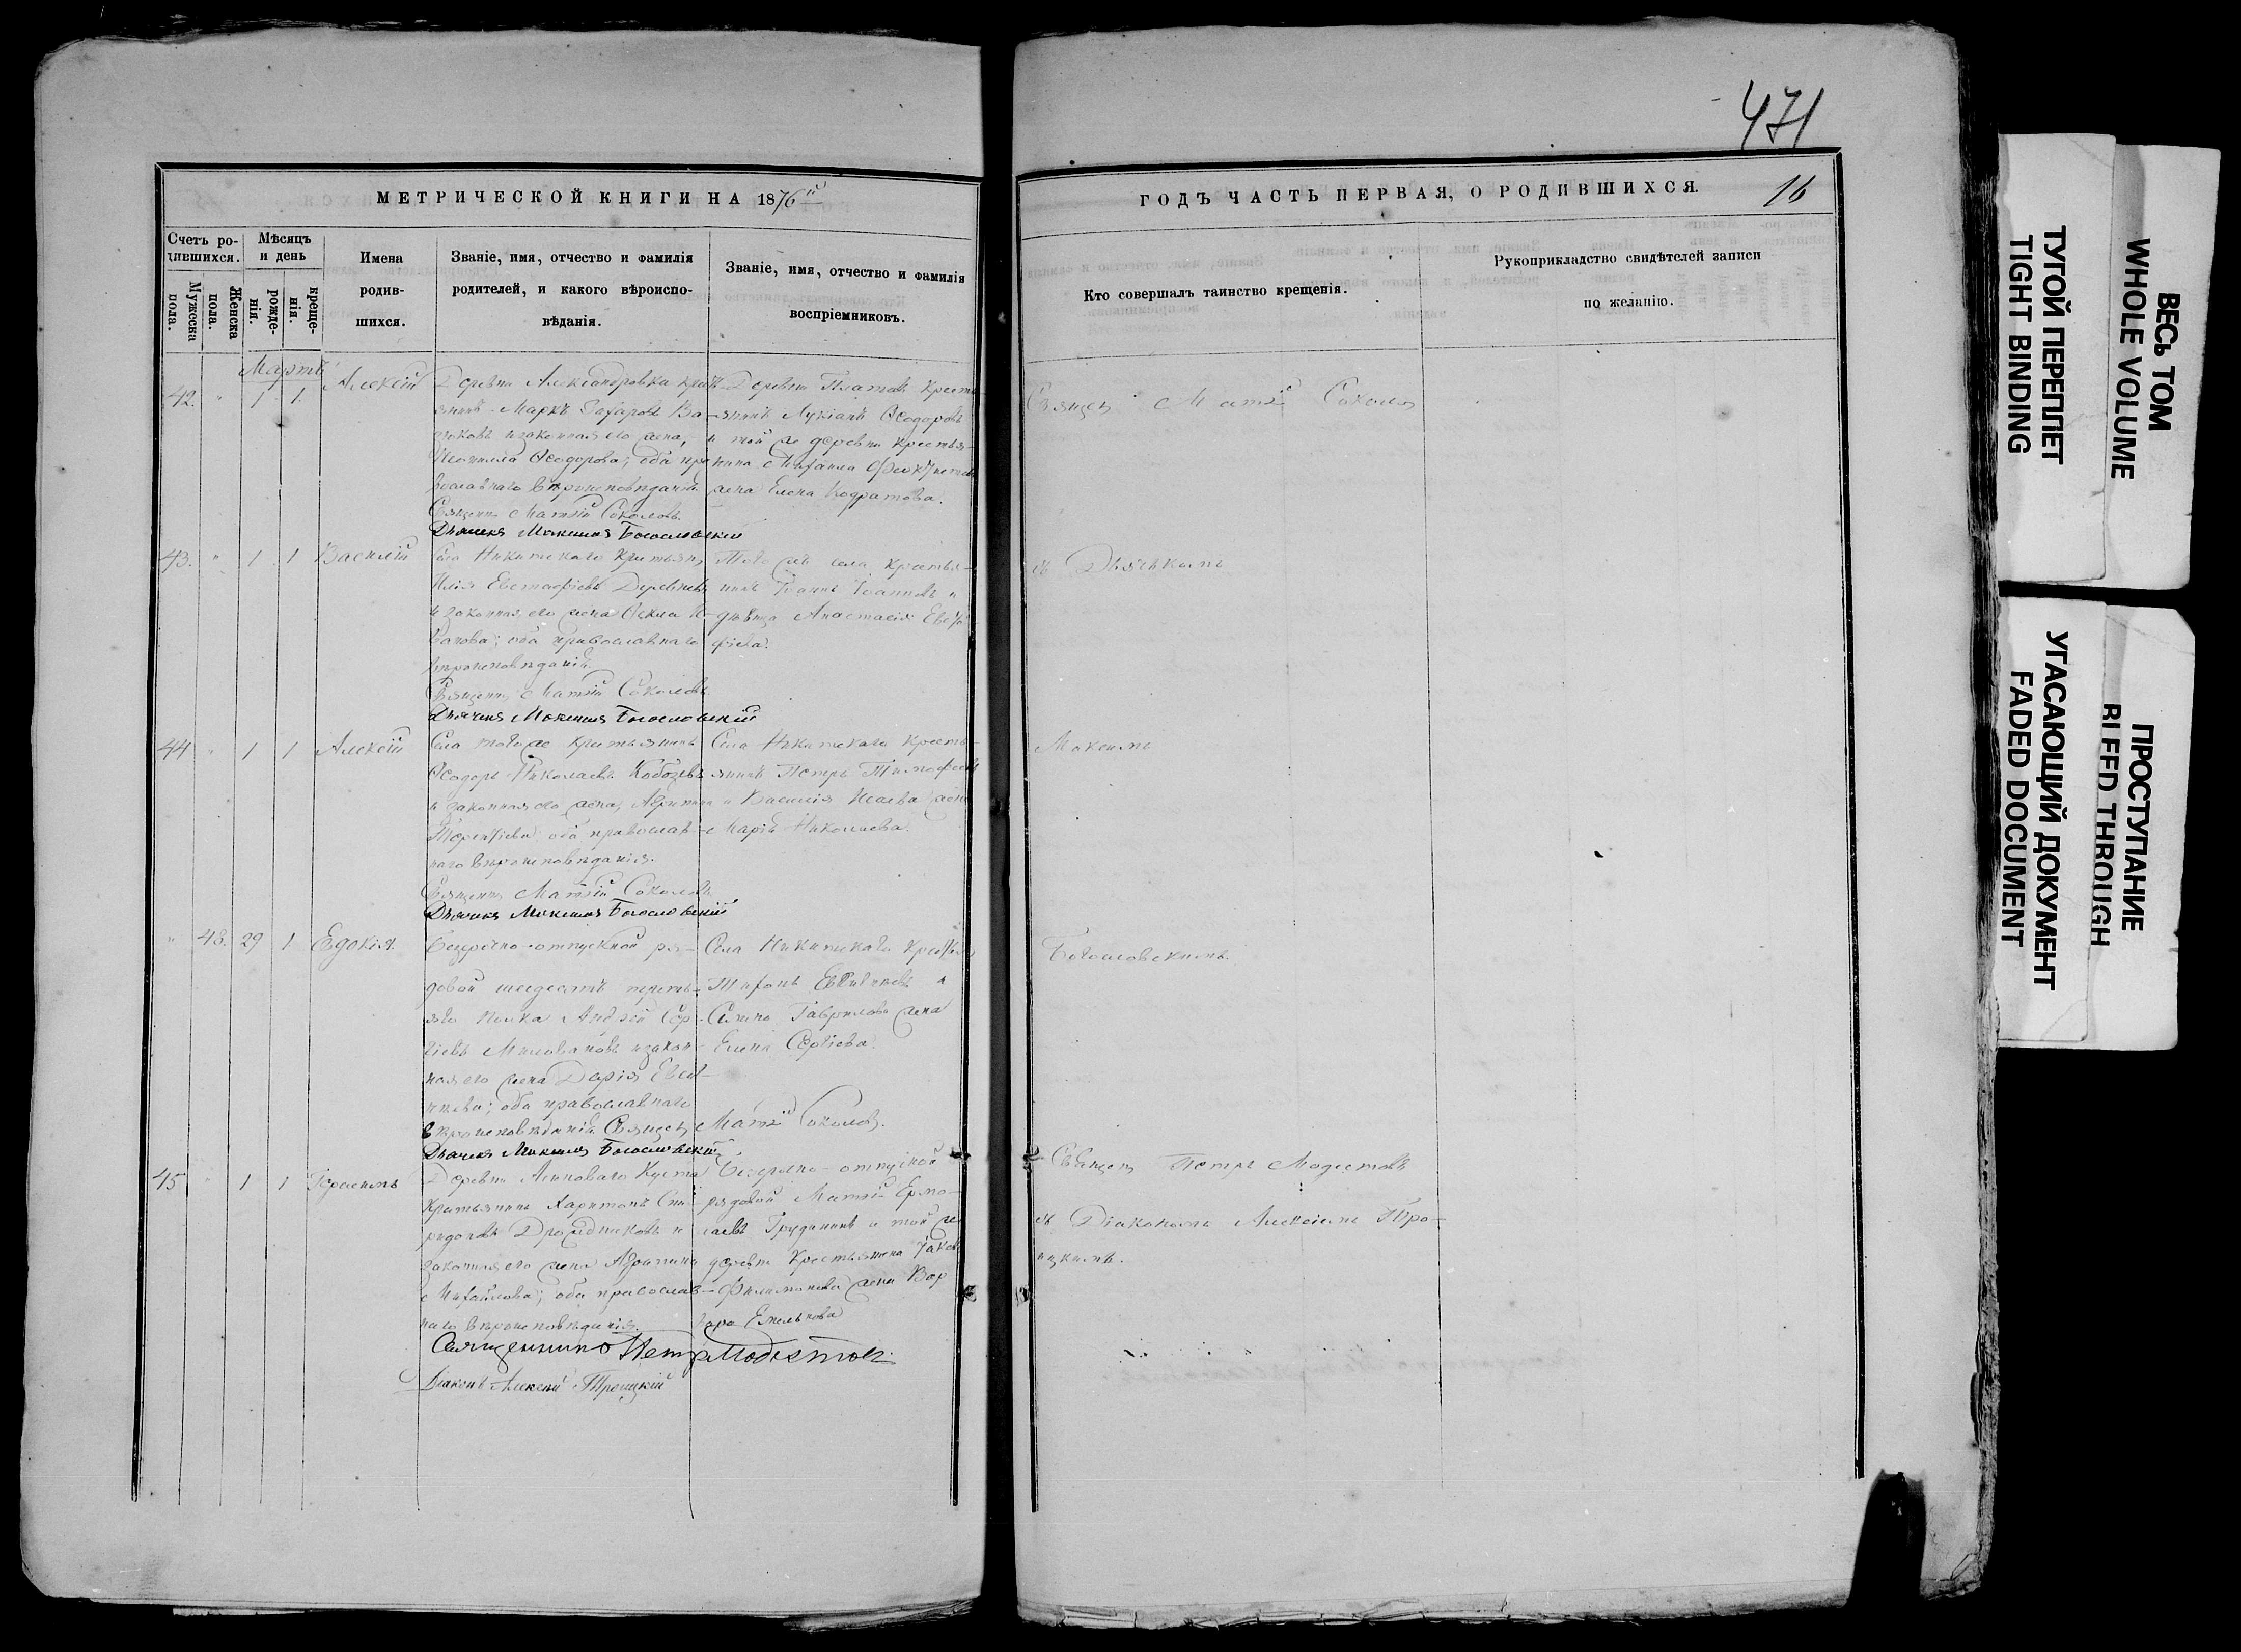 471
МЕТРИЧЕСКОЙ КНИГИ НА 1876й
ГОДЪ ЧАСТЬ ПЕРВАЯ, О РОДИВШИХСЯ.
16
Счетъ родившихся.
Мужеска пола.
Женска пола.
Мѣсяцъ и день
рожденія.
крещенія.
Имена
родив-
шихся.
Званіе, имя, отчество и фамилія
родителей, и какого вѣроиспо-
вѣданія.
Званіе, имя, отчество и фамилія
воспріемниковъ.
Кто совершалъ таинство крещенія.
Рукоприкладство свидѣтелей записи
по желанію.
Мартъ
42. " 1 1 Алексій
Деревни Александровка крест
янинъ Маркъ Захаровъ Ва-
и законная его жена,
Ѳеодорова; оба пра
вославнаго вѣроисповѣданія.
Священ. Матѳій Соколовъ.
Дьячекъ Максимъ Богословскій
Деревни крест
янинъ Лукіанъ Ѳеодоровъ
и той же деревни крестья-
нина Михаила
жена Елена Кодратова.
Священ Матѳій Соколов
43. " 1 1 Василій
Села Никитскаго Крестьян
Илія Евстафіевъ
и законная его жена Ѳекла И-
ванова; оба православнаго
вѣроисповѣданія.
Священ. Матѳій Соколовъ
Дьячекъ Максимъ Богословскій
Того же села крестья-
нинъ Іоаннъ Іоанновъ и
дѣвица Анастасія Евста
фіева.
съ Дьячкомъ
44 " 1 1 Алексій
Села того же Крестьянинъ
Ѳеодоръ Николаевъ Кобозевъ
и законная его жена,
Терентіева оба православ-
наго вѣроисповѣданія.
Священ. Матѳій Соколовъ
Дьячекъ Максимъ Богословскій
Села Никитскаго Кресть-
янинъ Петръ Тимофеевъ
и Василія Исаева жена
Марія Николаева.
Максимъ
" 43. 29 1 Евдокія.
Безсрочно-отпускной ря-
довой шесдесятъ треть-
яго полка Андрей Сер-
гіевъ Миловановъ и закон-
ная его жена Дарія
оба православнаго
вѣроисповѣданія. Священ. Матѳій Соколов.
Дьячекъ Максимъ Богословскій
Села Никитскаго Крестьян
Елена Сергіева.
Богословскимъ.
45 " 1 1 Герасимъ
Деревни Липоваго Куста
Крестьянинъ Харитонъ Спи-
ридоновъ и
законная его жена Агрипина
Михайлова; оба православ-
наго вѣроисповѣданія.
Священникъ Петръ Модестовъ
Діаконъ Алексій Троицкій
Безсрочно-отпускной
рядовой Матѳій Ермо-
лаевъ и той же
деревни Крестьянина Іаков
Филимонова жена Вар
вара Емельянова
Священ Петръ Модестовъ
съ Діакономъ Алексіемъ Тро-
ицкимъ.
ТУГОЙ ПЕРЕПЛЕТ
TIGHT BINDING
ВЕСЬ ТОМ
WHOLE VOLUME
УГАСАЮЩИЙ ДОКУМЕНТ
FADED DOCUMENT
ПРОСТУПАНИЕ
BLEED THROUGH